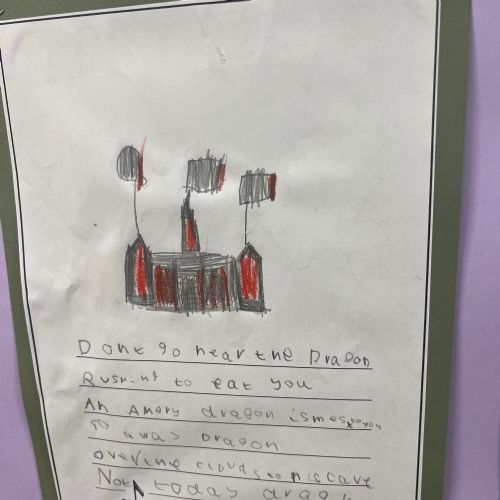 Dont go near the Dragon
Rushing to eat you
An Angry dragon is to you
go away Dragon
over the clouds to his cave
Not today dragon